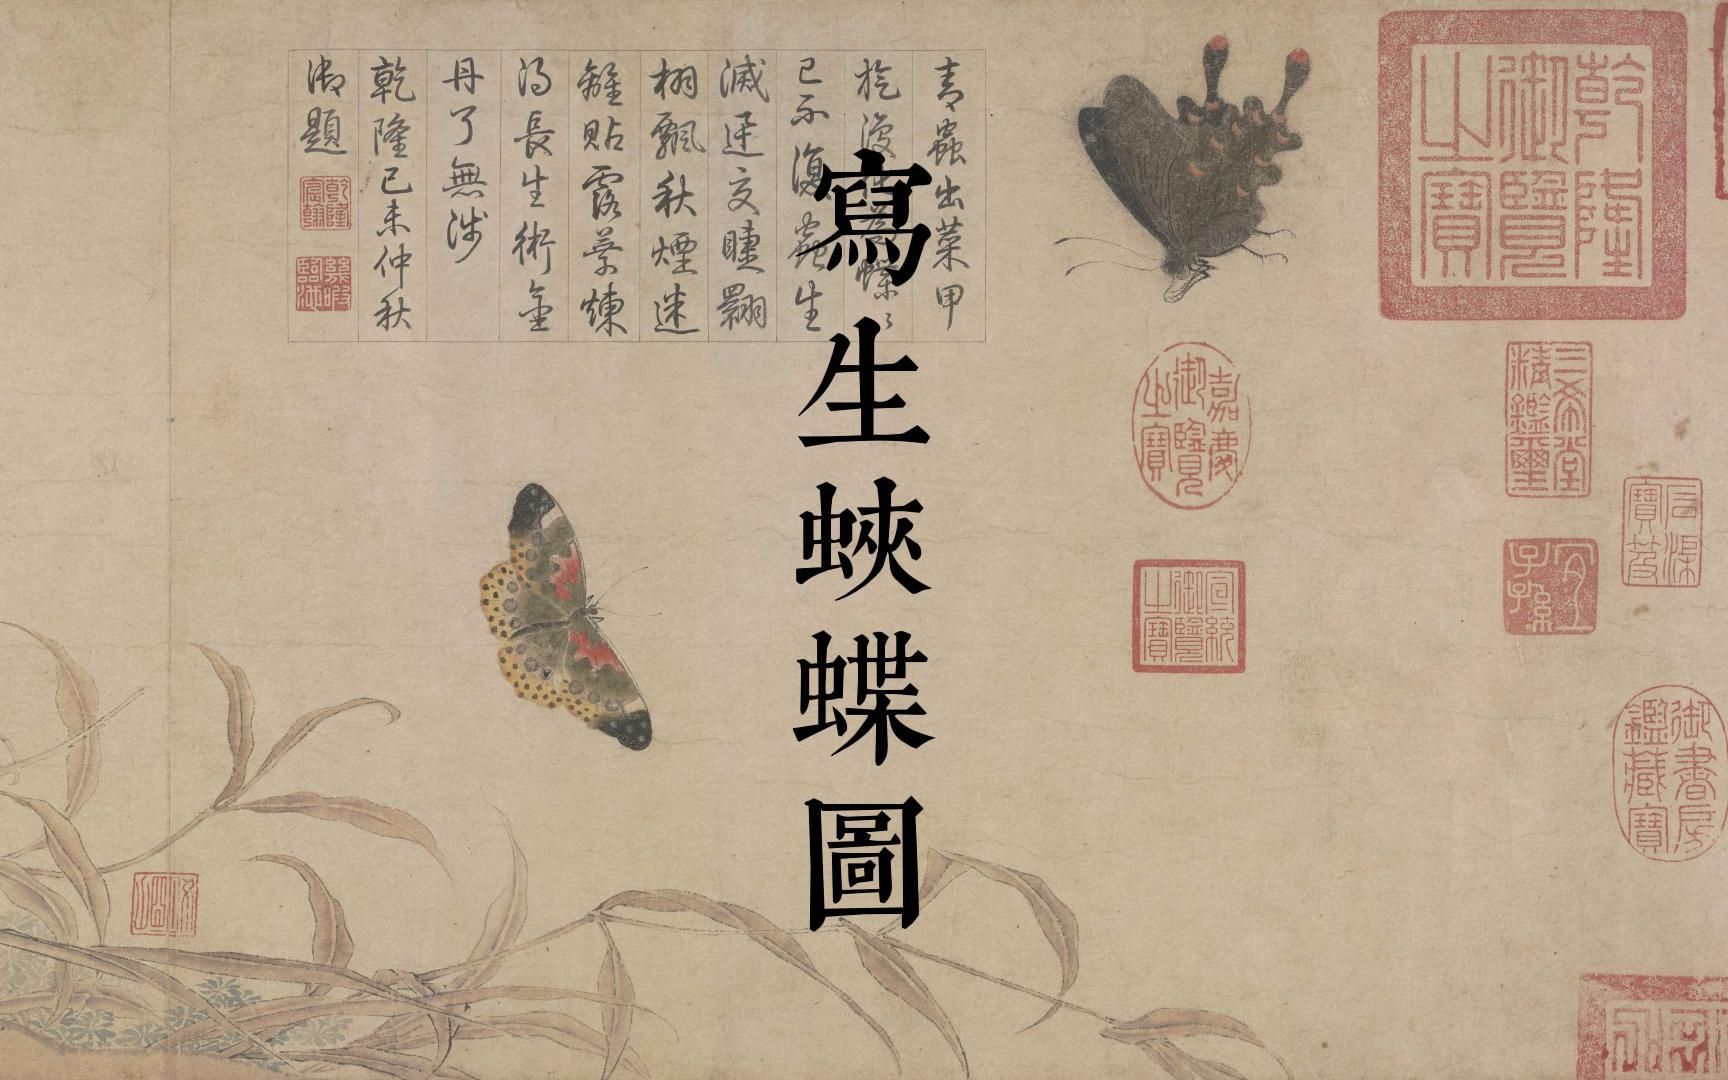 寫生蛺蝶圖
青蟲出菜甲
旋復
已不復蟲生
滅是交睫翾
栩飄秋煙迷
離貼露蕚煉
得長生術金
丹了無涉
乾隆己未仲秋
御題
乾隆宸翰
乾隆御覽之寶
嘉慶御覽之寶
三希堂精鑑璽
宣統御覽之寶
宜子孫
石渠寶笈
御書房鑑藏寶